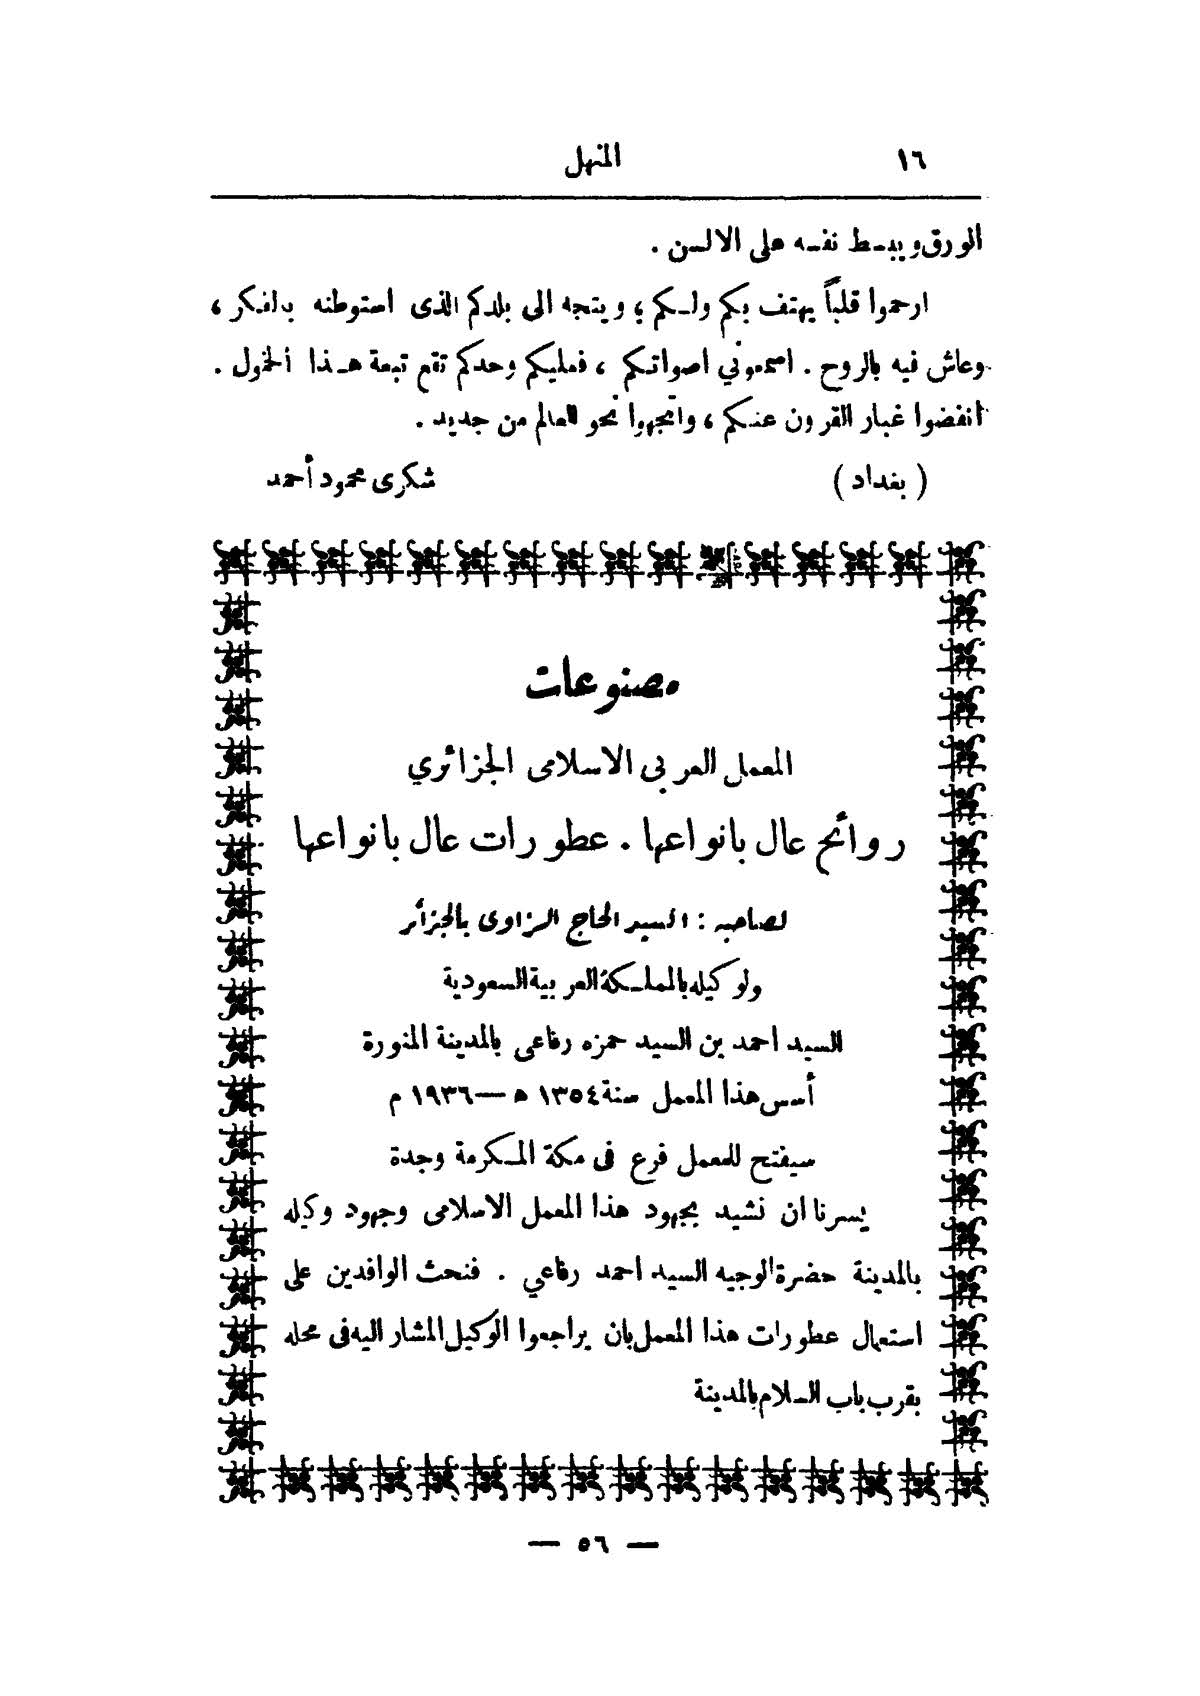 ١٦ المنهل
الورق ويبسط نفسه على الالسن .
ارحموا قلباً يهتف بكم ولكم ؛ ويتجه الى بلدكم الذى استوطنه بالفكر ،
وعاش فيه بالروح . اسمعوني اصواتكم ، فعليكم وحدكم تقع تبعة هذا الخمول .
انفضوا غبار القرون عنكم ، واتجهوا نحو العالم من جديد .
( بغداد ) شكرى محمود أحمد
مصنوعات
المعمل العربى الاسلامى الجزائري
روائح عال بانواعها . عطورات عال بانواعها
لصاحبه : السيد الحاج الزاوى بالجزائر
ولوكيله بالمملكة العربية السعودية
السيد احمد بن السيد حمزه رفاعى بالمدينة المنورة
أسس هذا المعمل سنة ١٣٥٤ ه — ١٩٣٦ م
سيفتح للمعمل فرع فى مكة المكرمة وجدة
يسرنا ان نشيد بجهود هذا المعمل الاسلامى وجهود وكيله
بالمدينة حضرة الوجيه السيد احمد رفاعي . فنحث الوافدين على
استعمال عطورات هذا المعمل بان يراجعوا الوكيل المشار اليه فى محله
بقرب باب السلام بالمدينة
— ٥٦ —